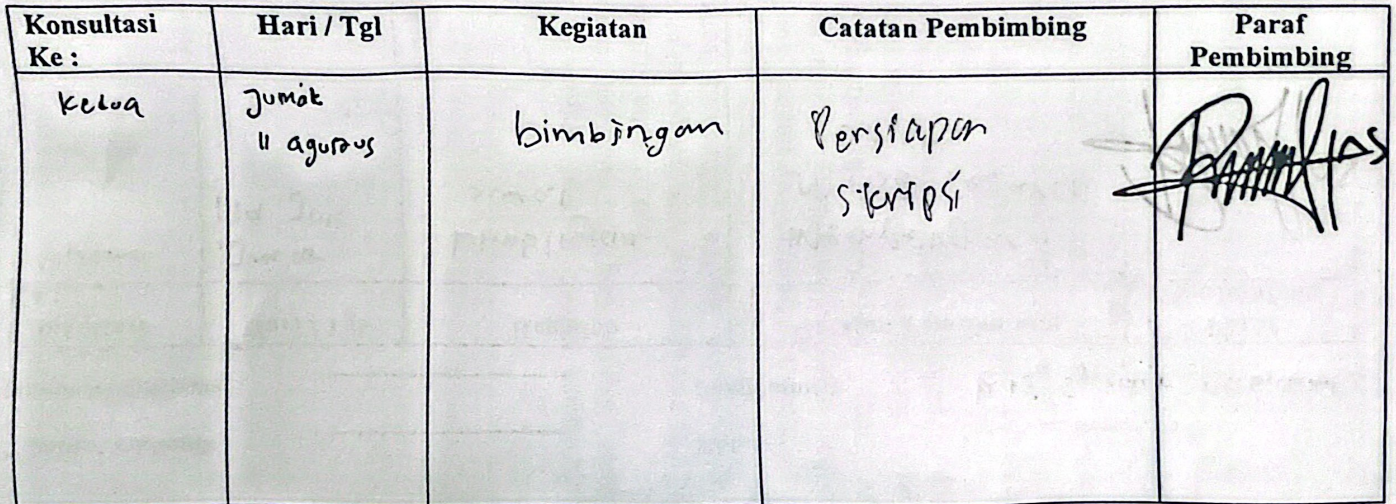 Konsultasi Ke :
Hari / Tgl
Kegiatan
Catatan Pembimbing
Paraf Pembimbing
Kedua
Jumat
11 agustus
bimbingan
Persiapan
skripsi